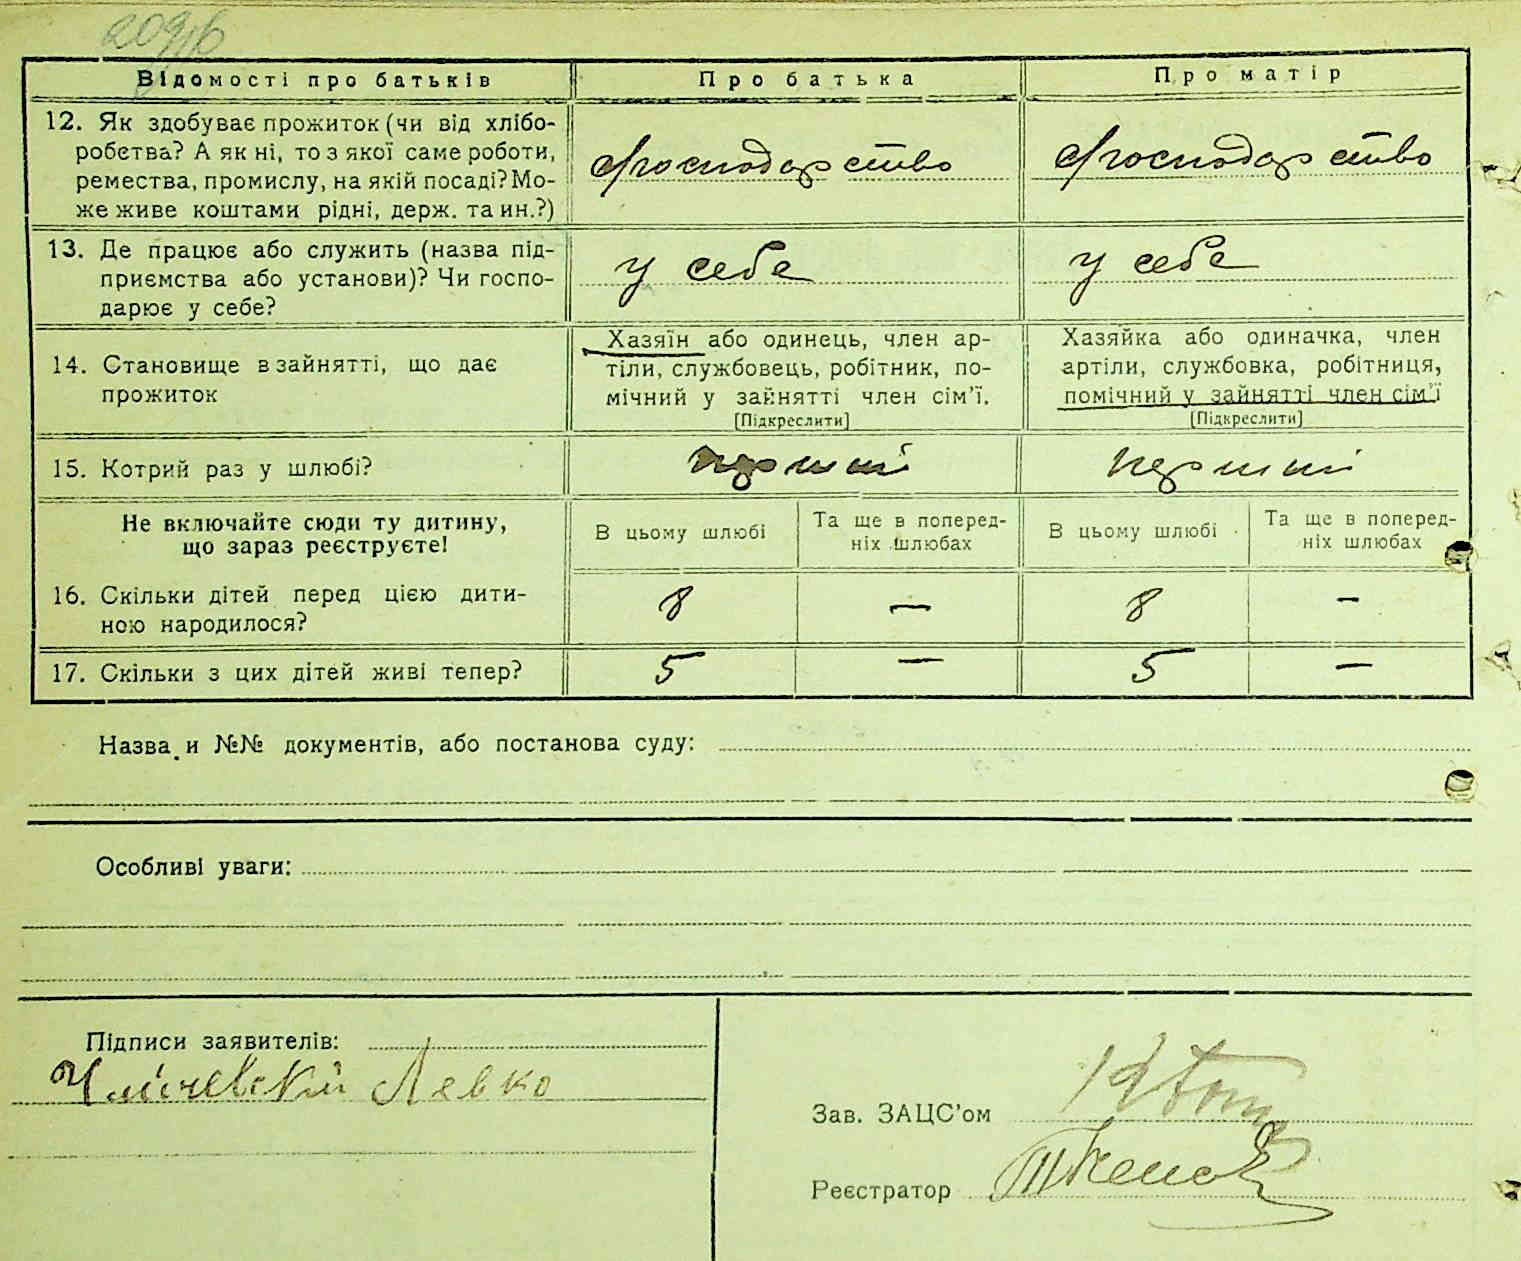 Відомості про батьків
Про батька
Про матір
12. Як здобуває прожиток (чи від хлібо-
робства? А як ні, то з якої саме роботи,
ремества, промислу, на якій посаді? Мо-
же живе коштами рідні, держ. та ин.?)
господарство
господарство
13. Де працює або служить (назва під-
приємства або установи)? Чи госпо-
дарює у себе?
у себе
у себе
14. Становище в зайнятті, що дає
прожиток
Хазяїн або одинець, член ар-
тіли, службовець, робітник, по-
мічний у зайнятті член сім'ї.
[Підкреслити]
Хазяйка або одиначка, член
артіли, службовка, робітниця,
помічний у зайнятті член сім'ї
[Підкреслити]
15. Котрий раз у шлюбі?
перший
перший
Не включайте сюди ту дитину,
що зараз реєструєте!
В цьому шлюбі
Та ще в поперед-
ніх шлюбах
В цьому шлюбі
Та ще в поперед-
ніх шлюбах
16. Скільки дітей перед цією дити-
ною народилося?
8
—
8
—
17. Скільки з цих дітей живі тепер?
5
—
5
—
Назва и №№ документів, або постанова суду:
Особливі уваги:
Підписи заявителів:
Левко
Зав. ЗАЦС'ом
Реєстратор